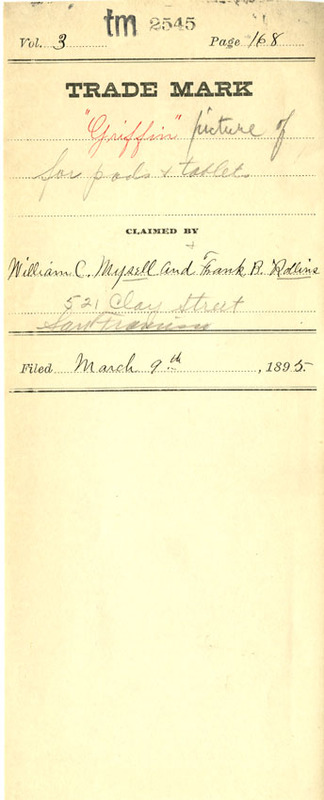 tm 2545
Vol. 3 Page 168
TRADE MARK
"Griffin" picture of
for pads & tablets
CLAIMED BY
William C. Mysell and Frank B. Rollins
521 Clay Street
San Francisco
Filed March 9th, 1895.